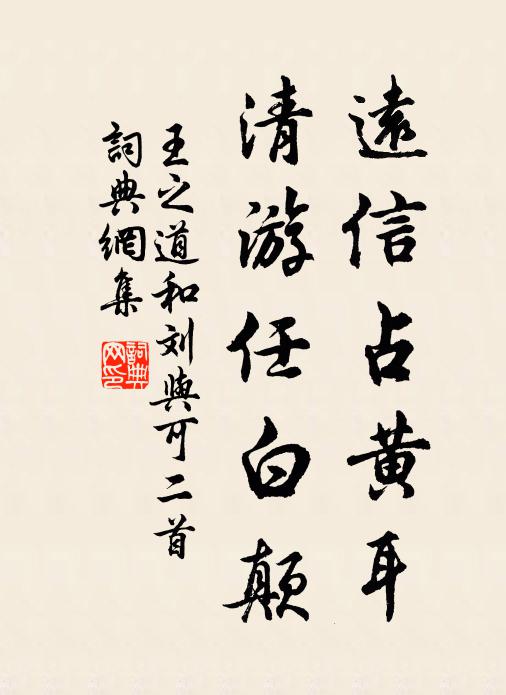 遠信占黄耳
清游任白颠
王之道和刘與可二首
詞典網集
詞典
网印